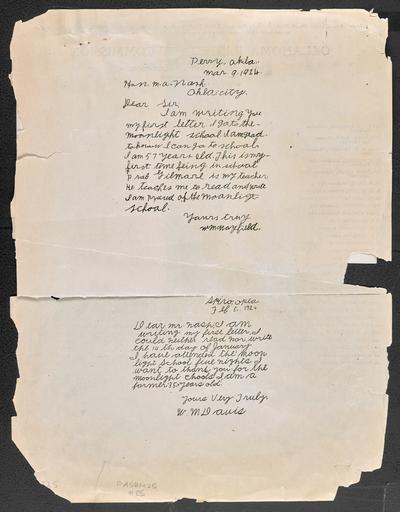 Perry, Okla.
Mar 9, 1926.
Hon. M. A. Nash
Okla city.
Dear Sir,
I am writing you
my first letter. I go to the
moonlight school I am glad
to know I can go to school
I am 57 years old. This is my
first time being in school
Prof. Gilmarl is my teacher
He teaches me to read and write
I am proud of the moonlight
school.
Yours truly
Wm Mayfield.
Spiro, okla
Feb 5, 1926
Dear mr. nash, I am
writing my first letter. I
could neither read nor write
the 10 th day of January
I have attended the moon
light school five nights I
want to thank you for the
moonlight chools I am a
farmer 35 years old.
Yours Very Truly.
W. M Davis